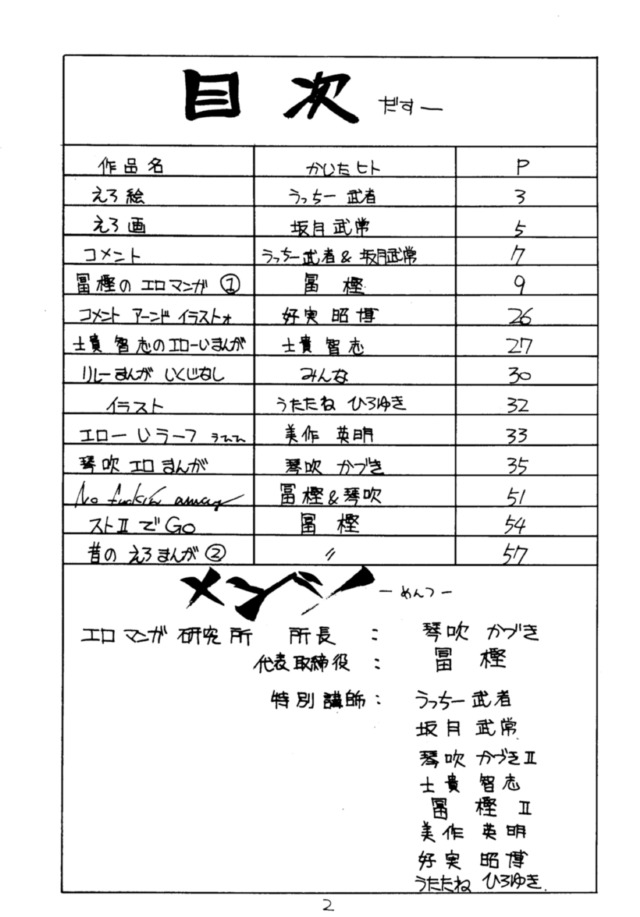 目次 だすー
作品名 かいたヒト P
えろ絵 うっちー武者 3
えろ画 坂月武常 5
コメント うっちー武者&坂月武常 7
冨樫の エロマンガ ① 冨樫 9
コメント アーンド イラストォ 好実昭博 26
士貴智志のエローいまんが 士貴智志 27
リレーまんが いくじなし みんな 30
イラスト うたたね ひろゆき 32
エロー いラーフ うひひ 美作英明 33
琴吹 エロ まんが 琴吹 かづき 35
No fuckin' 冨樫&琴吹 51
ストⅡ で Go 冨樫 54
昔の えろまんが ② 〃 57
メンツ ーめんつー
エロマンガ研究所 所長: 琴吹 かづき
代表取締役: 冨樫
特別講師: うっちー武者
坂月武常
琴吹 かづきⅡ
士貴智志
冨樫Ⅱ
美作英明
好実昭博
うたたね ひろゆき
2